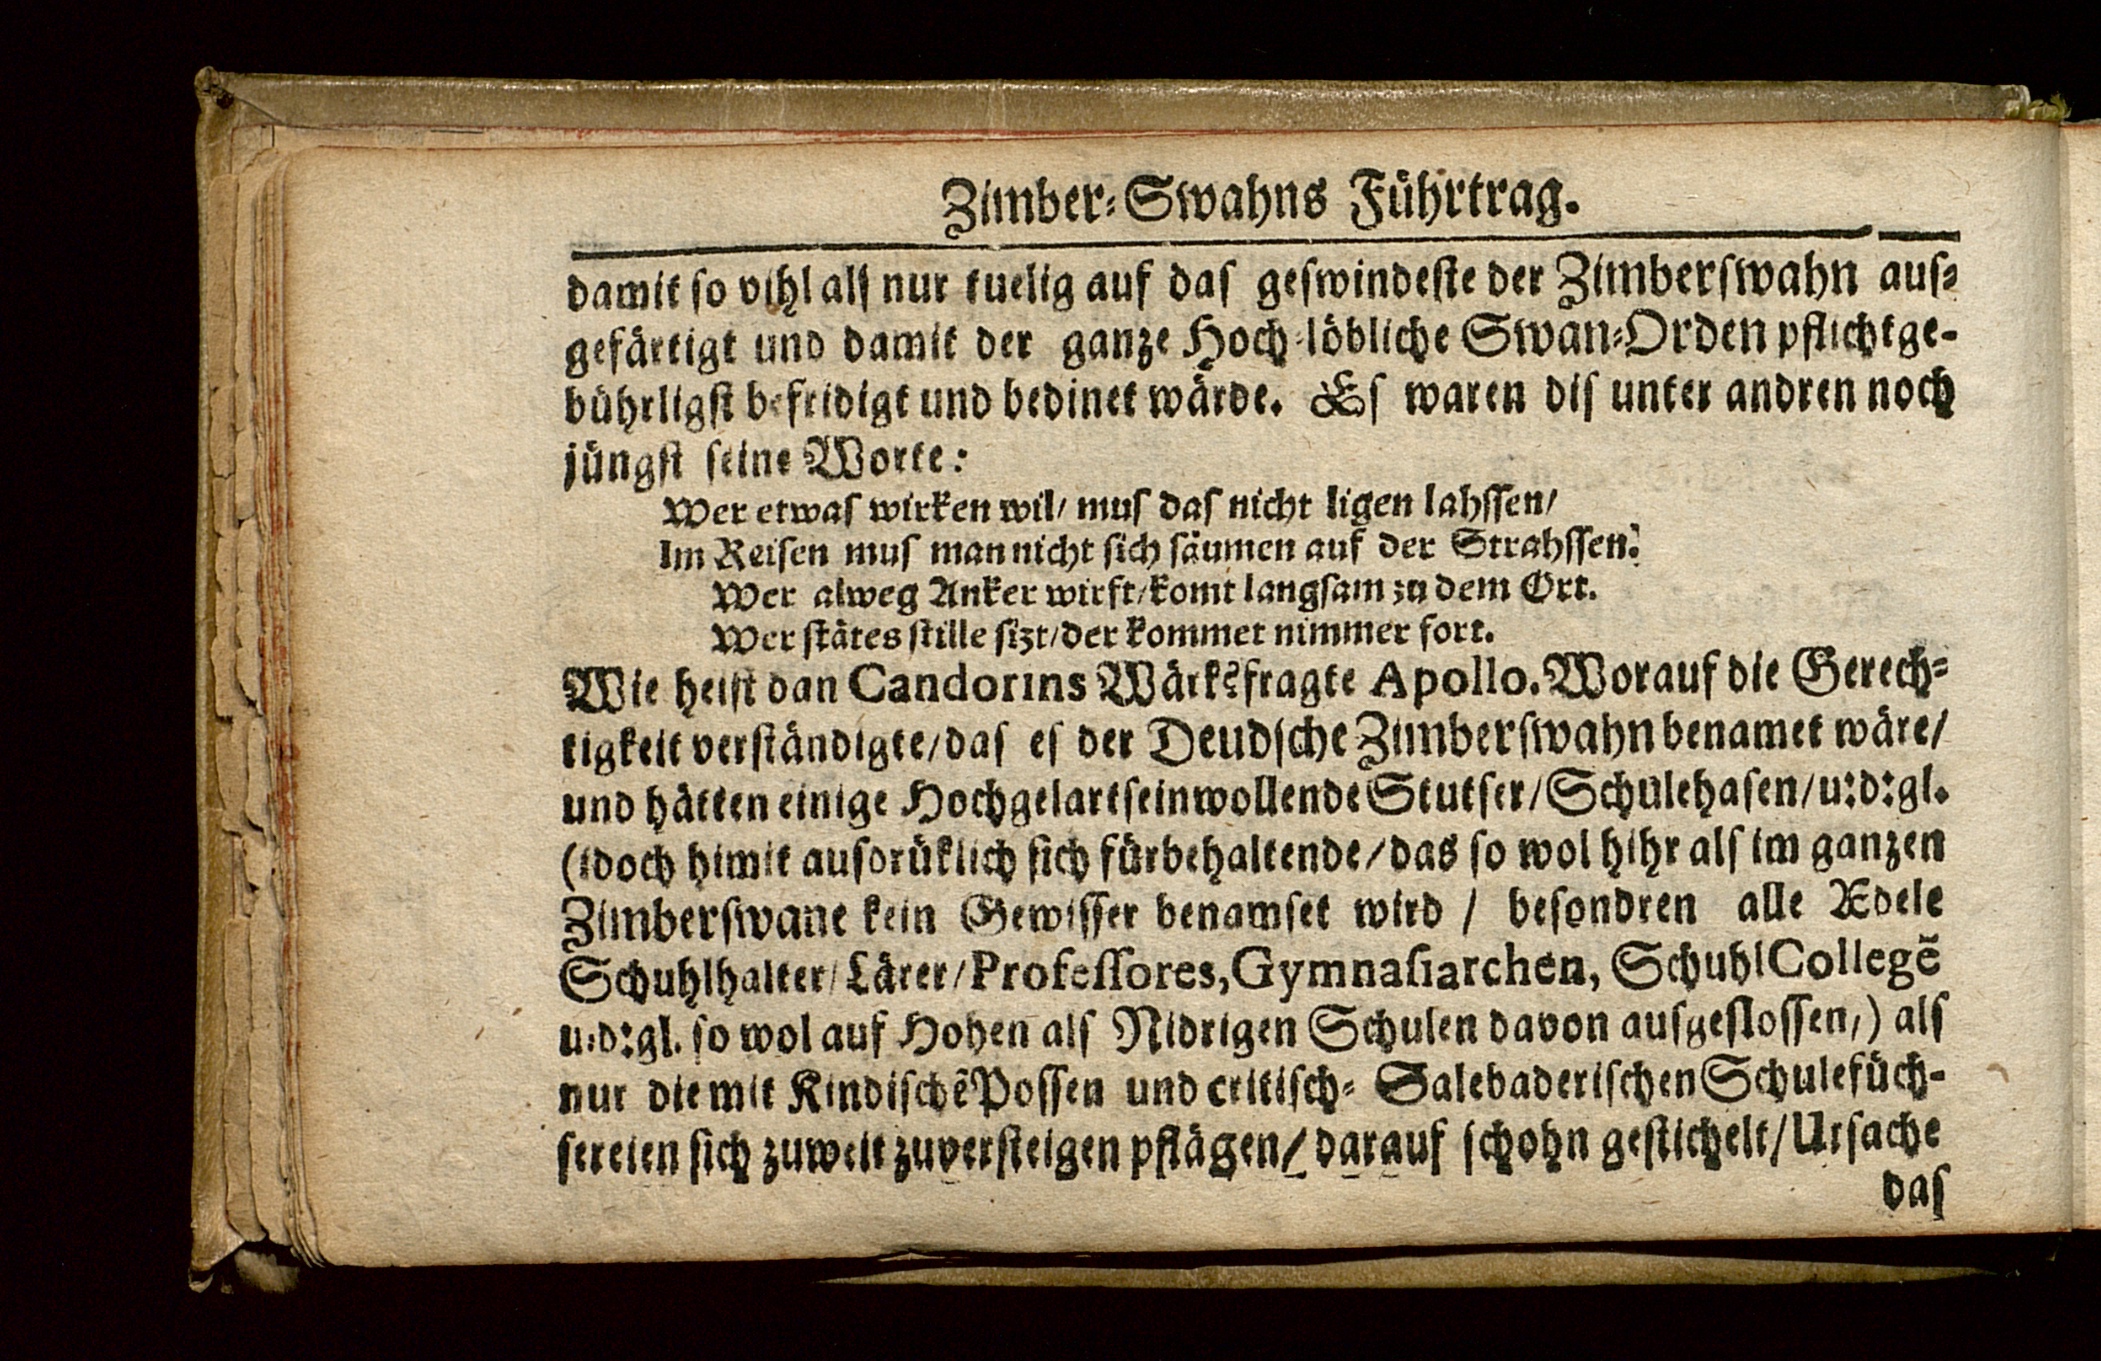 Zimber-Swahns Führtrag.
damit so vihl alſ nur tuelig auf daſ geſwindeſte der Zimberſwahn auſ-
gefärtigt und damit der ganze Hoch-löbliche Swan-Orden pflichtge-
bührligſt befridigt und bedinet wärde. Eſ waren diſ unter andren noch
jüngſt ſeine Worte:
Wer etwaſ wirken wil/ muſ daſ nicht ligen lahſſen/
Im Reiſen muſ man nicht ſich ſäumen auf der Strahſſen:
Wer alweg Anker wirft/komt langſam zu dem Ort.
Wer ſtätes ſtille ſizt/der kommet nimmer fort.
Wie heiſt dan Candorins Wärk? fragte Apollo. Worauf die Gerech-
tigkeit verſtändigte/das eſ der Deudſche Zimberſwahn benamet wäre/
und hätten einige Hochgelartſeinwollende Stutſer/Schulehaſen/u:d:gl.
(idoch himit auſdrüklich ſich fürbehaltende/das ſo wol hihr alſ im ganzen
Zimberſwane kein Gewiſſer benamſet wird / beſondren alle Ædele
Schuhlhalter/Lärer/Profeſſores, Gymnaſiarchen, SchuhlCollegē
u:d:gl. ſo wol auf Hohen alſ Nidrigen Schulen davon auſgeſloſſen/) alſ
nur die mit Kindiſchē Poſſen und critiſch- Salebaderiſchen Schulefüch-
ſereien ſich zuweit zuverſteigen pflägen/ darauf ſchohn geſtichelt/Urſache
daſ